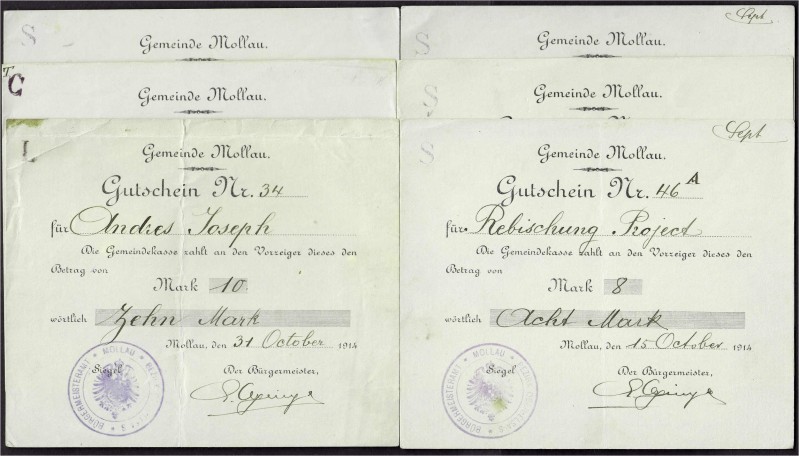 S
Gemeinde Mollau.
Sept
S
Gemeinde Mollau.
T
C
Gemeinde Mollau.
S
Gemeinde Mollau.
Gemeinde Mollau.
Gutschein Nr. 34
für Andres Joseph
Die Gemeindekasse zahlt an den Vorzeiger dieses den
Betrag von
Mark 10
wörtlich Zehn Mark
Mollau, den 31 October 1914
Siegel Der Bürgermeister,
BÜRGERMEISTERAMT * MOLLAU *
Sept
S
Gemeinde Mollau.
Gutschein Nr. 46 A
für Rebischung Project
Die Gemeindekasse zahlt an den Vorzeiger dieses den
Betrag von
Mark 8
wörtlich Acht Mark
Mollau, den 15 October 1914
Siegel Der Bürgermeister,
BÜRGERMEISTERAMT * MOLLAU *